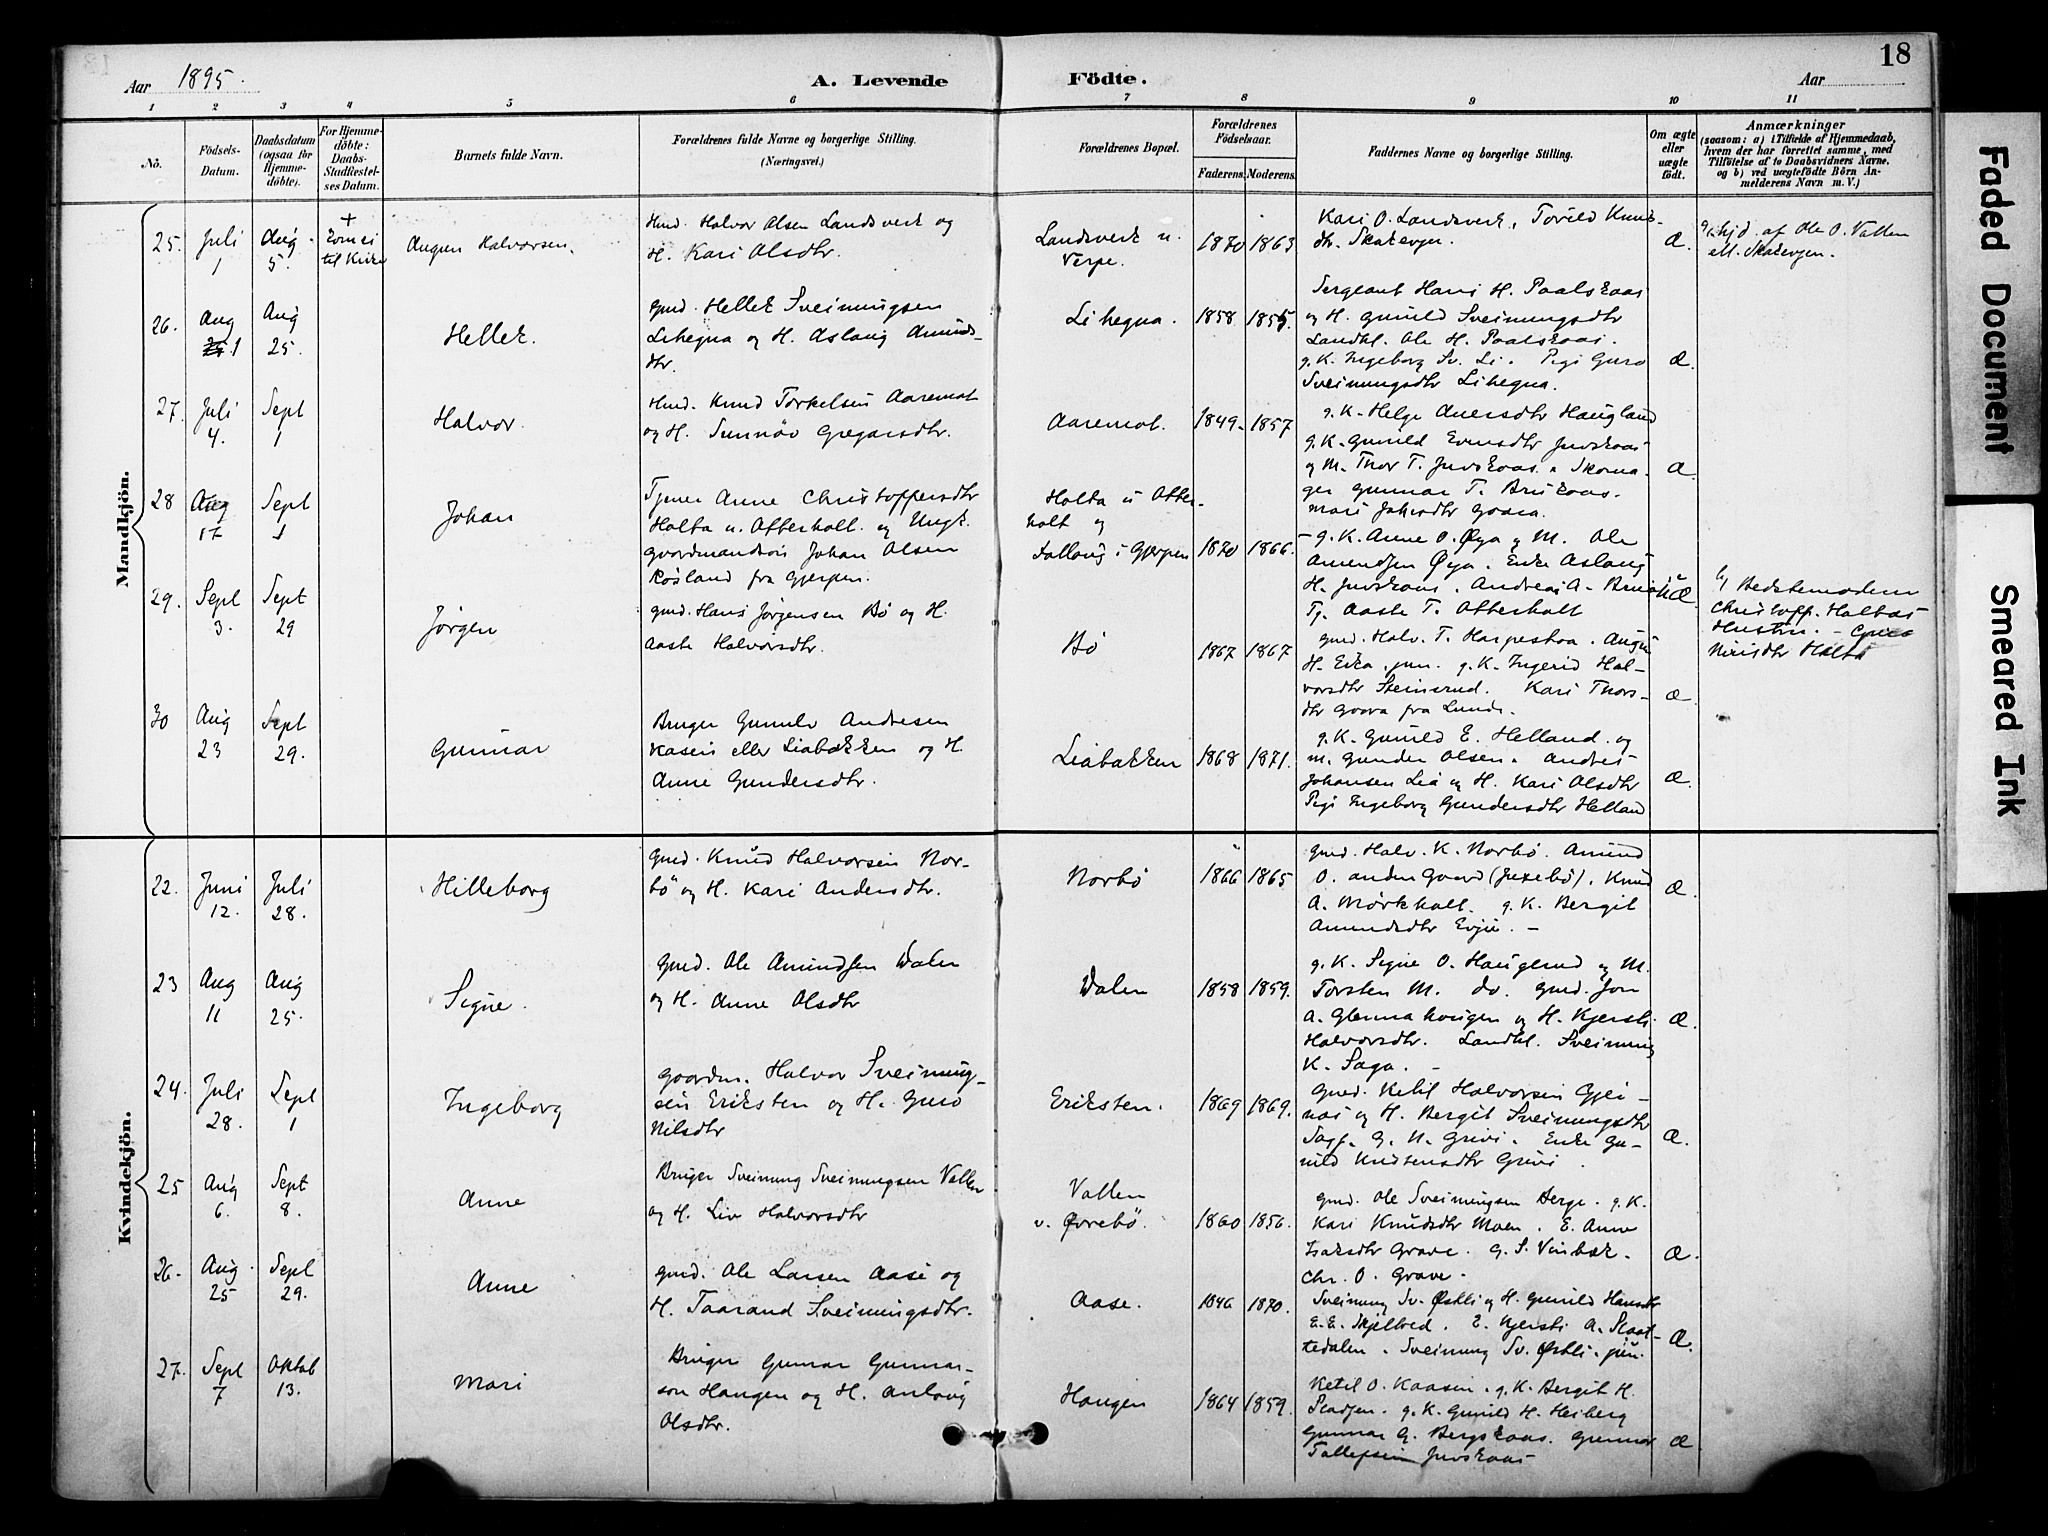 18
Aar 1895.
A. Levende Födte.
Aar
1 2 3 4 5 6 7 8 9 10 11
No.
Födsels-Datum.
Daabsdatum (ogsaa för Hjemme-döbte).
For Hjemme-döbte: Daabs-Stadfæstel-ses Datum.
Barnets fulde Navn.
Forældrenes fulde Navne og borgerlige Stilling.
(Næringsvei.)
Forældrenes Bopæl.
Forældrenes Födselsaar.
Faderens. Moderens.
Faddernes Navne og borgerlige Stilling.
Om ægte eller uægte födt.
Anmærkninger
(saasom: a) i Tilfælde af Hjemmedaab, hvem der har forrettet samme, med Tilföielse af to Daabsvidners Navne, og b) ved uægtefödte Börn Anmelderens Navn m. V.)
Mandkjön.
25. Juli 1 Aug. 5. + Kom ei til Kirke Augun Halvorsen.
Hmd. Halvor Olsen Landsverk og
H. Kari Olsdtr.
Landsverk u. Verpe. 1870 1863
Kari O. Landsverk, Torild Knuts-
dtr. Skakevjen.
Æ.
hjd. af Ole O. Vallen
ell. Skakevjen.
26. Aug 1 Aug 25. Hellek.
Gmd. Hellek Sveinungsen
Lihegna og H. Aslaug Amunds-
dtr.
Lihegna. 1858 1855.
Sergeant Hans H. Paalskaas
og H. Gunild Sveinungsdtr
Landhl. Ole H. Paalskaas.
g. K. Ingeborg Sv. Li. Pigi Guro
Sveinungsdtr Lihegna.
Æ.
27. Juli 4. Sept 1 Halvor.
Hmd. Knud Torkelsen Aaremot
og H. Sunnöv Gregarsdtr.
Aaremot. 1849. 1857
g. K. Helge Aversdtr Haugland
g. K. Gunild Evensdtr Juvskaas
og M. Thor T. Juvskaas. Skoma-
ger Gunnar T. Brukaas.
Mari Goara.
Æ
28 Aug 17 Sept 1 Johan
Tjener Anne Christoffersdtr
Holta u. Otterholt og Ungk.
Gaardmandssön Johan Olsen
Rösland fra Gjerpen.
Holta u Otter-
holt og
i Gjerpen 1870 1866.
g. K. Anne O. Øya og M. Ole
Amundsen Øya. Enke Aslaug
H. Juvskaas. Andreas A.
Tj. Aaste T. Otterholt
uÆ.
b) Bedstemoderen
Christoff. Holtas
Hustru.
Holta
29. Sept 3. Sept 29 Jörgen
Gmd. Hans Jörgensen Bö og H.
Aaste Halvorsdtr.
Bö 1867 1867
Gmd. Halv. T. Harpestoa. Augun
H. Eika. jun. g. K. Ingerid Hal-
vorsdtr Steinsrud. Kari Thors-
dtr Goara fra Lunde.
Æ
30 Aug 23 Sept 29. Gunnar
Bruger Gunulv Andresen
Kasein eller Liabakken og H.
Anne Gundersdtr.
Liabakken 1868 1871.
g. K. Gunild E. Helland. og
M. Gunder Olsen. Andres
Johansen Lia og H. Kari Olsdtr
Pigi Ingeborg Gundersdtr Helland
Æ.
Kvindekjön.
22. Juni 12. Juli 28. Hilleborg
Gmd. Knud Halvorsen Nor-
bö og H. Kari Andersdtr.
Norbö 1866 1865
Gmd. Halv. K. Norbö. Amund
O. anden Gaard (Juxebö). Knud
A. Mörkholt. g. K. Bergit
Amundsdtr Evju. –
Æ.
23 Aug 11 Aug 25. Signe.
Gmd. Ole Amundsen Dalen
og H. Anne Olsdtr
Dalen 1858 1859.
g. K. Signe O. Haugerud og M.
Torsten M. do. Gmd. Jon
A. Glennahougen og H. Kjersti
Halvorsdtr. Landhl. Sveinung
K. Saga. –
Æ.
24. Juli 28. Sept 1 Ingeborg
Gaardm. Halvor Sveinung-
sen Eriksten og H. Guro
Nilsdtr
Eriksten. 1869 1869.
Gmd. Ketil Halvorsen Gjei-
nas og H. Bergit Sveinungsdtr
G. N. Grivi. Enke Gu-
nild Knutsensdtr Grivi.
Æ.
25 Aug 6. Sept 8. Anne
Bruger Sveinung Sveinungsen Vallen
og H. Liv Halvorsdtr
Vallen
v. Øvrebö. 1860 1856.
Gmd. Ole Sveinungsen Berge. g. K.
Kari Knudsdtr Moen. E. Anne
Isaksdtr Grave. G. S. Vinbæk.
Chr. O. Grave.
Æ.
26. Aug 25 Sept 29. Anne
Gmd. Ole Larsen Aase og
H. Taarand Sveinungsdtr.
Aase. 1846 1870.
Sveinung Sv. Østli og H. Gunild Hansdtr
E. E. Skjelbred. E. Kjersti A. Slaat-
tedalen. Sveinung Sv. Østli. jun.
Æ.
27. Sept 7 Oktob 13. Mari
Bruger Gunnar Gunnar-
son Haugen og H. Anlaug
Olsdtr.
Haugen 1864 1859.
Ketil O. Kaasen. g. K. Bergit H.
g. K. Gunild H. Heiberg
Gunnar G. Bergskaas. Gunnar
Tallefsen Juvskaas
Æ
Faded Document
Smeared Ink